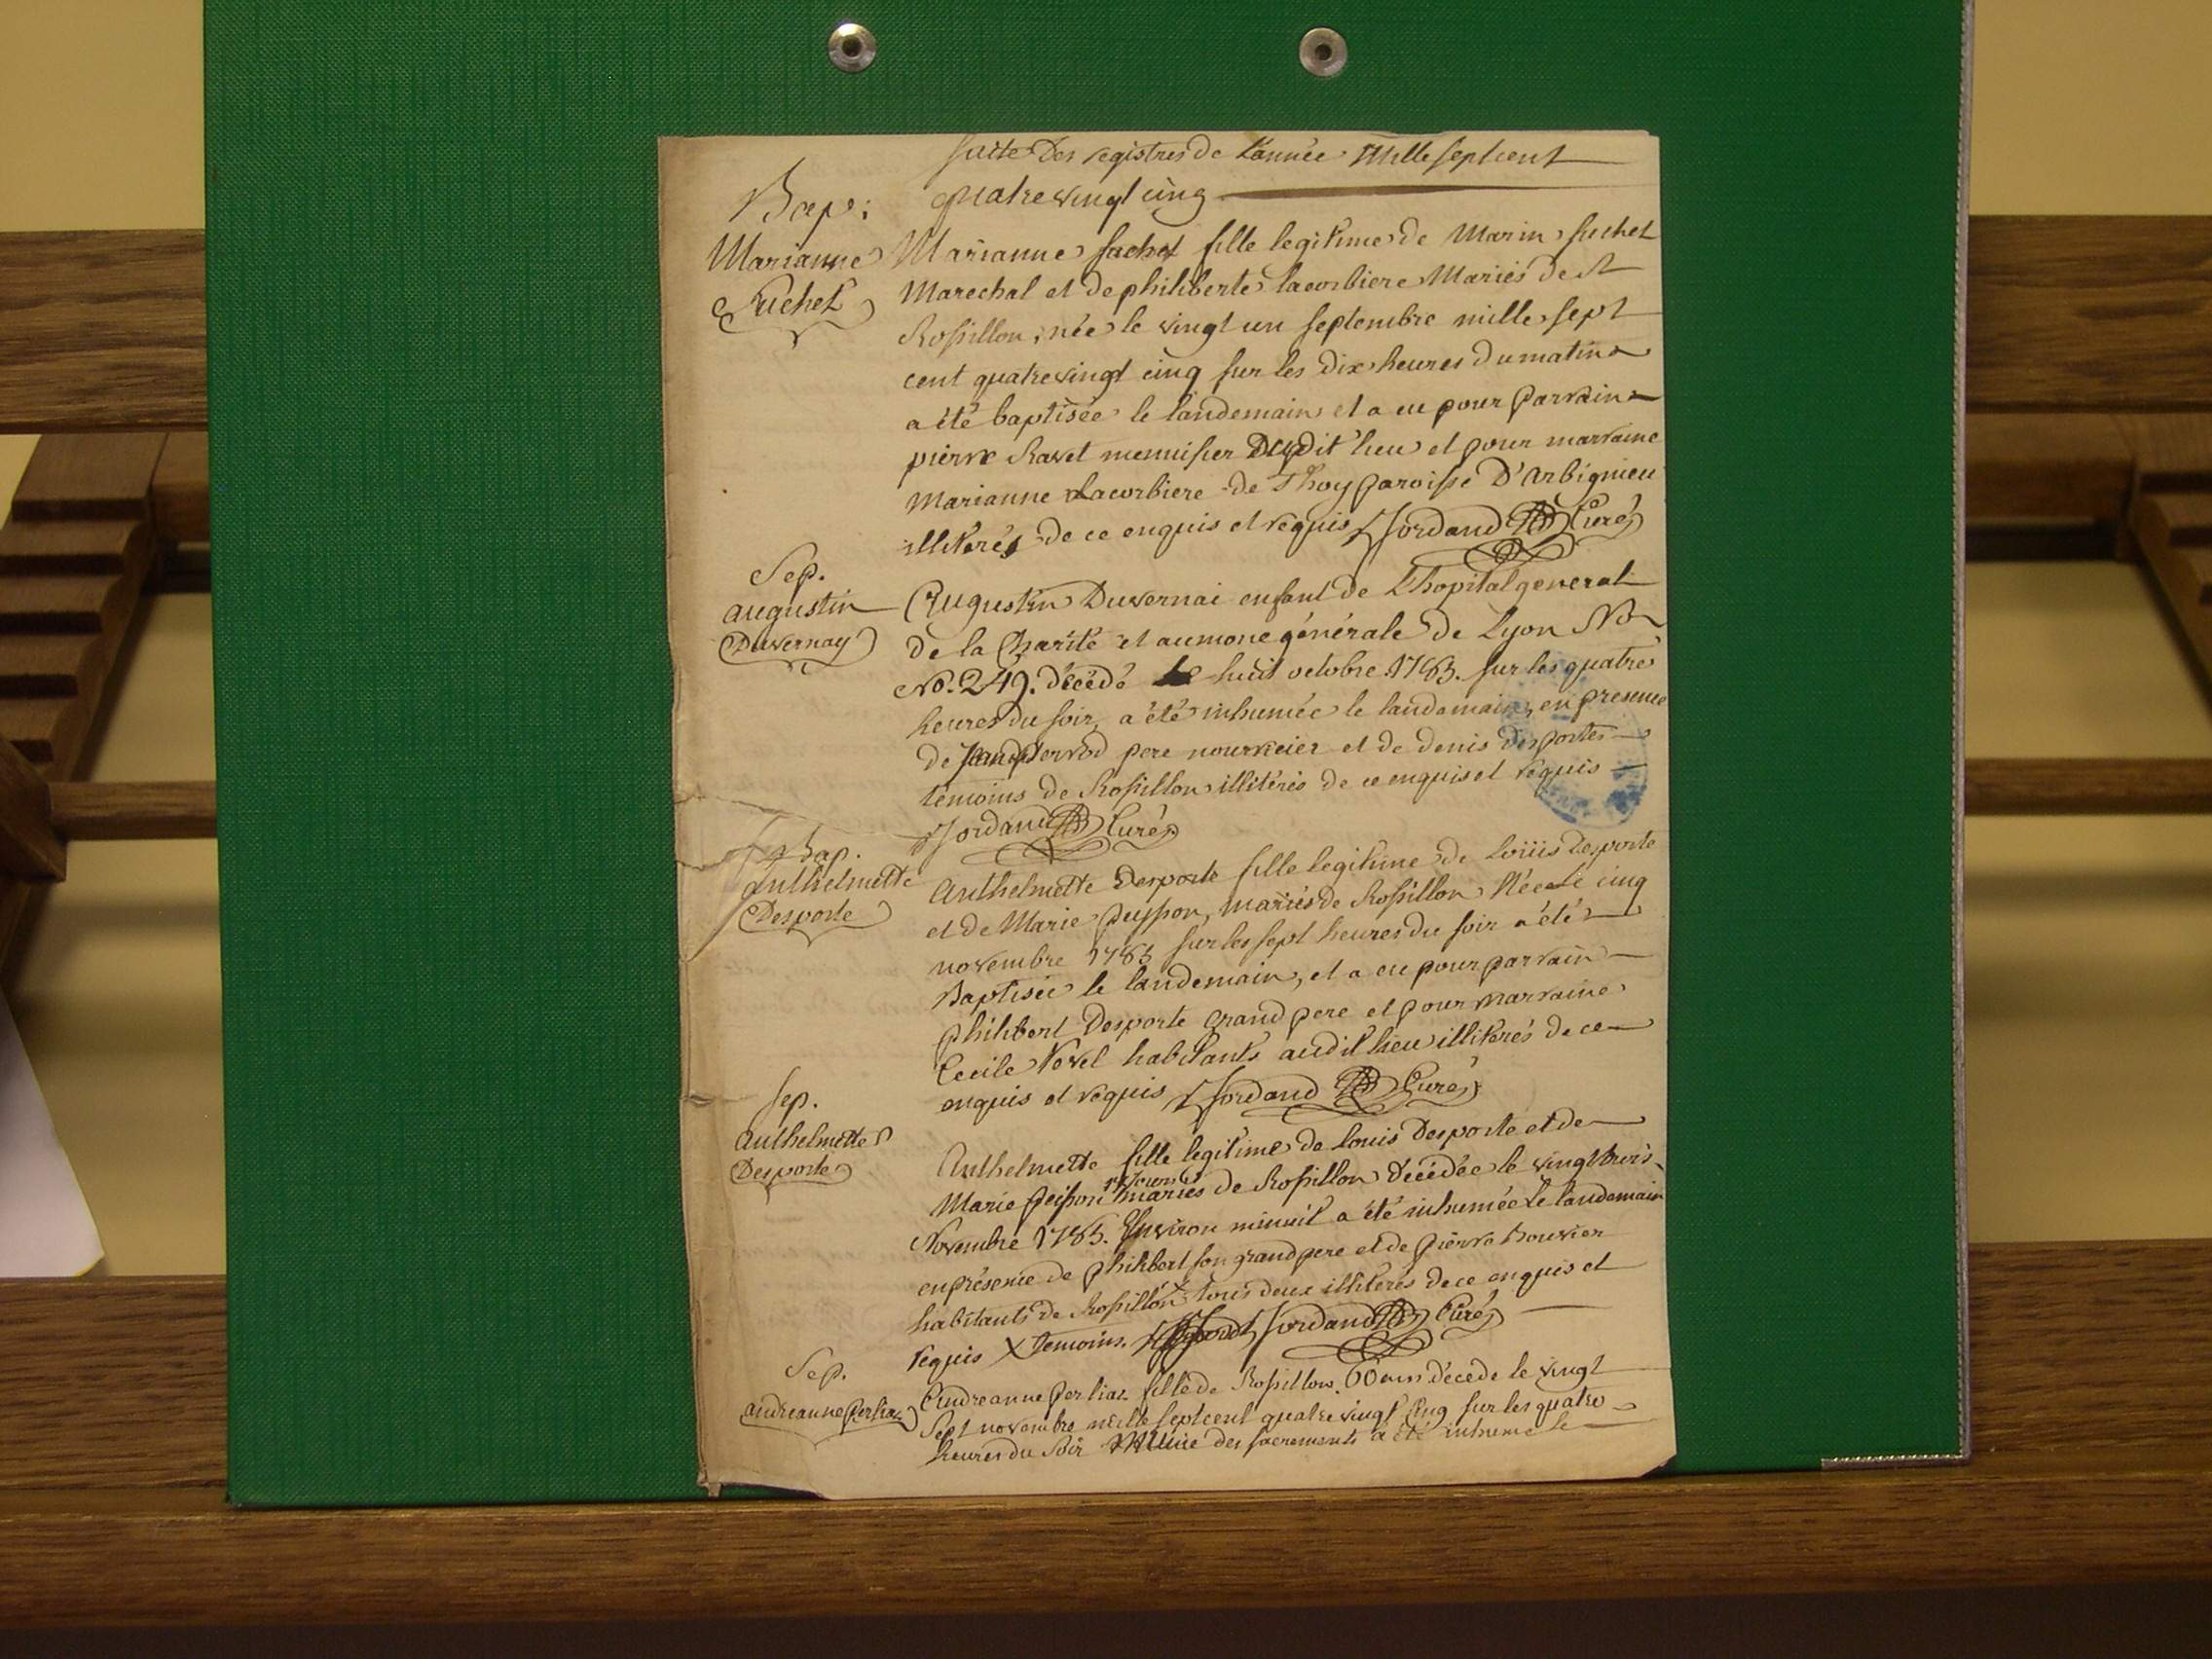 Suite Des registres de L'année Mille sept cent
quatre vingt cinq
Bap:
Marianne
Suchet
Marianne Suchet fille legitime de Marin Suchet
Marechal et de philiberte Lacorbiere Mariés de St
Rossillon, née le vingt un septembre mille sept
cent quatrevingt cinq sur les dix heures du matin
a été baptisée le landemain et a eu pour parrain
pierre Ravet menuisier Dudit lieu et pour marraine
Marianne Lacorbiere de Thoy paroisse D'Arbignieu
illiterés de ce enquis et requis Jordand Curé
Sep.
augustin
Duvernay
Augustin Duvernai enfant de L'hopital general
de la Charité et aumone générale de Lyon No
No. 249. décédé le huit octobre 1785. sur les quatre
heures du soir, a été inhumée le landemain, en presence
de pere nourricier et de denis desportes
temoins de Rossillon illitérés de ce enquis et requis
Jordand Curé
Bap.
Anthelmette
Desporte
Anthelmette Desporte fille legitime de Loüis Desporte
et de Marie peysson, mariés de Rossillon Née le cinq
novembre 1785 sur les sept heures du soir a été
Baptisée le landemain, et a eu pour parrain
philibert Desporte grand pere et pour marraine
Cecile Vovel habitants audit lieu illiterés de ce
enquis et requis Jordand Curé
Sep.
Anthelmette
Desporte
Anthelmette fille legitime de Louis Desporte et de
Marie peisson mariés de Rossillon Décédée le vingt trois
Novembre 1785. Environ minuit a été inhumée Le landemain
en présence de philibert son grand pere et de pierre bouvier
habitants de Rossillon X tous deux illiterés de ce enquis et
requis X temoins. Jordand Curé
Sep.
andreanne Perliaz
Andreanne Perliaz fille de Rossillon. 60 ans décede le vingt
Sept novembre mille sept cent quatre vingt Cinq sur les quatre
heures du Soir Munie des sacrements a été inhumé le